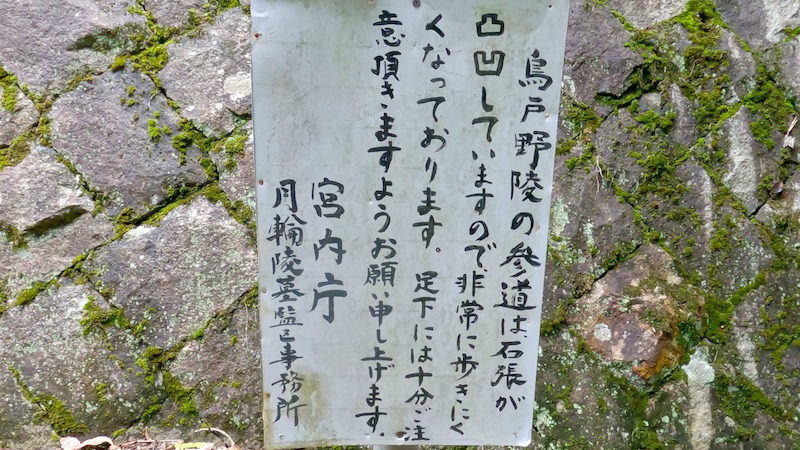 鳥戸野陵の参道は、石張が
凸凹していますので、非常に歩きにく
くなっております。足下には十分ご注
意頂きますようお願い申し上げます。
宮内庁
月輪陵墓監区事務所